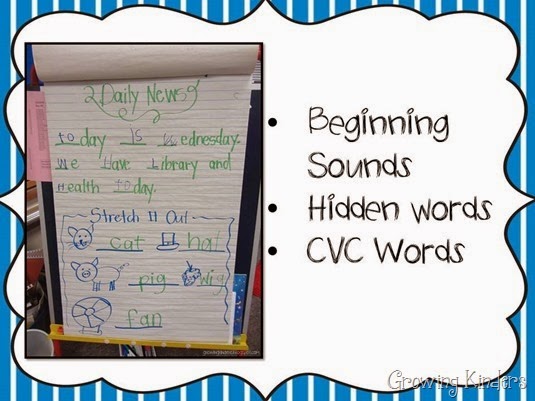 Daily News
Today is Wednesday.
We have Library and
Health today.
Stretch It Out
cat hat
pig wig
fan
growingkinders.blogspot.com
Beginning
Sounds
Hidden words
CVC Words
Growing Kinders